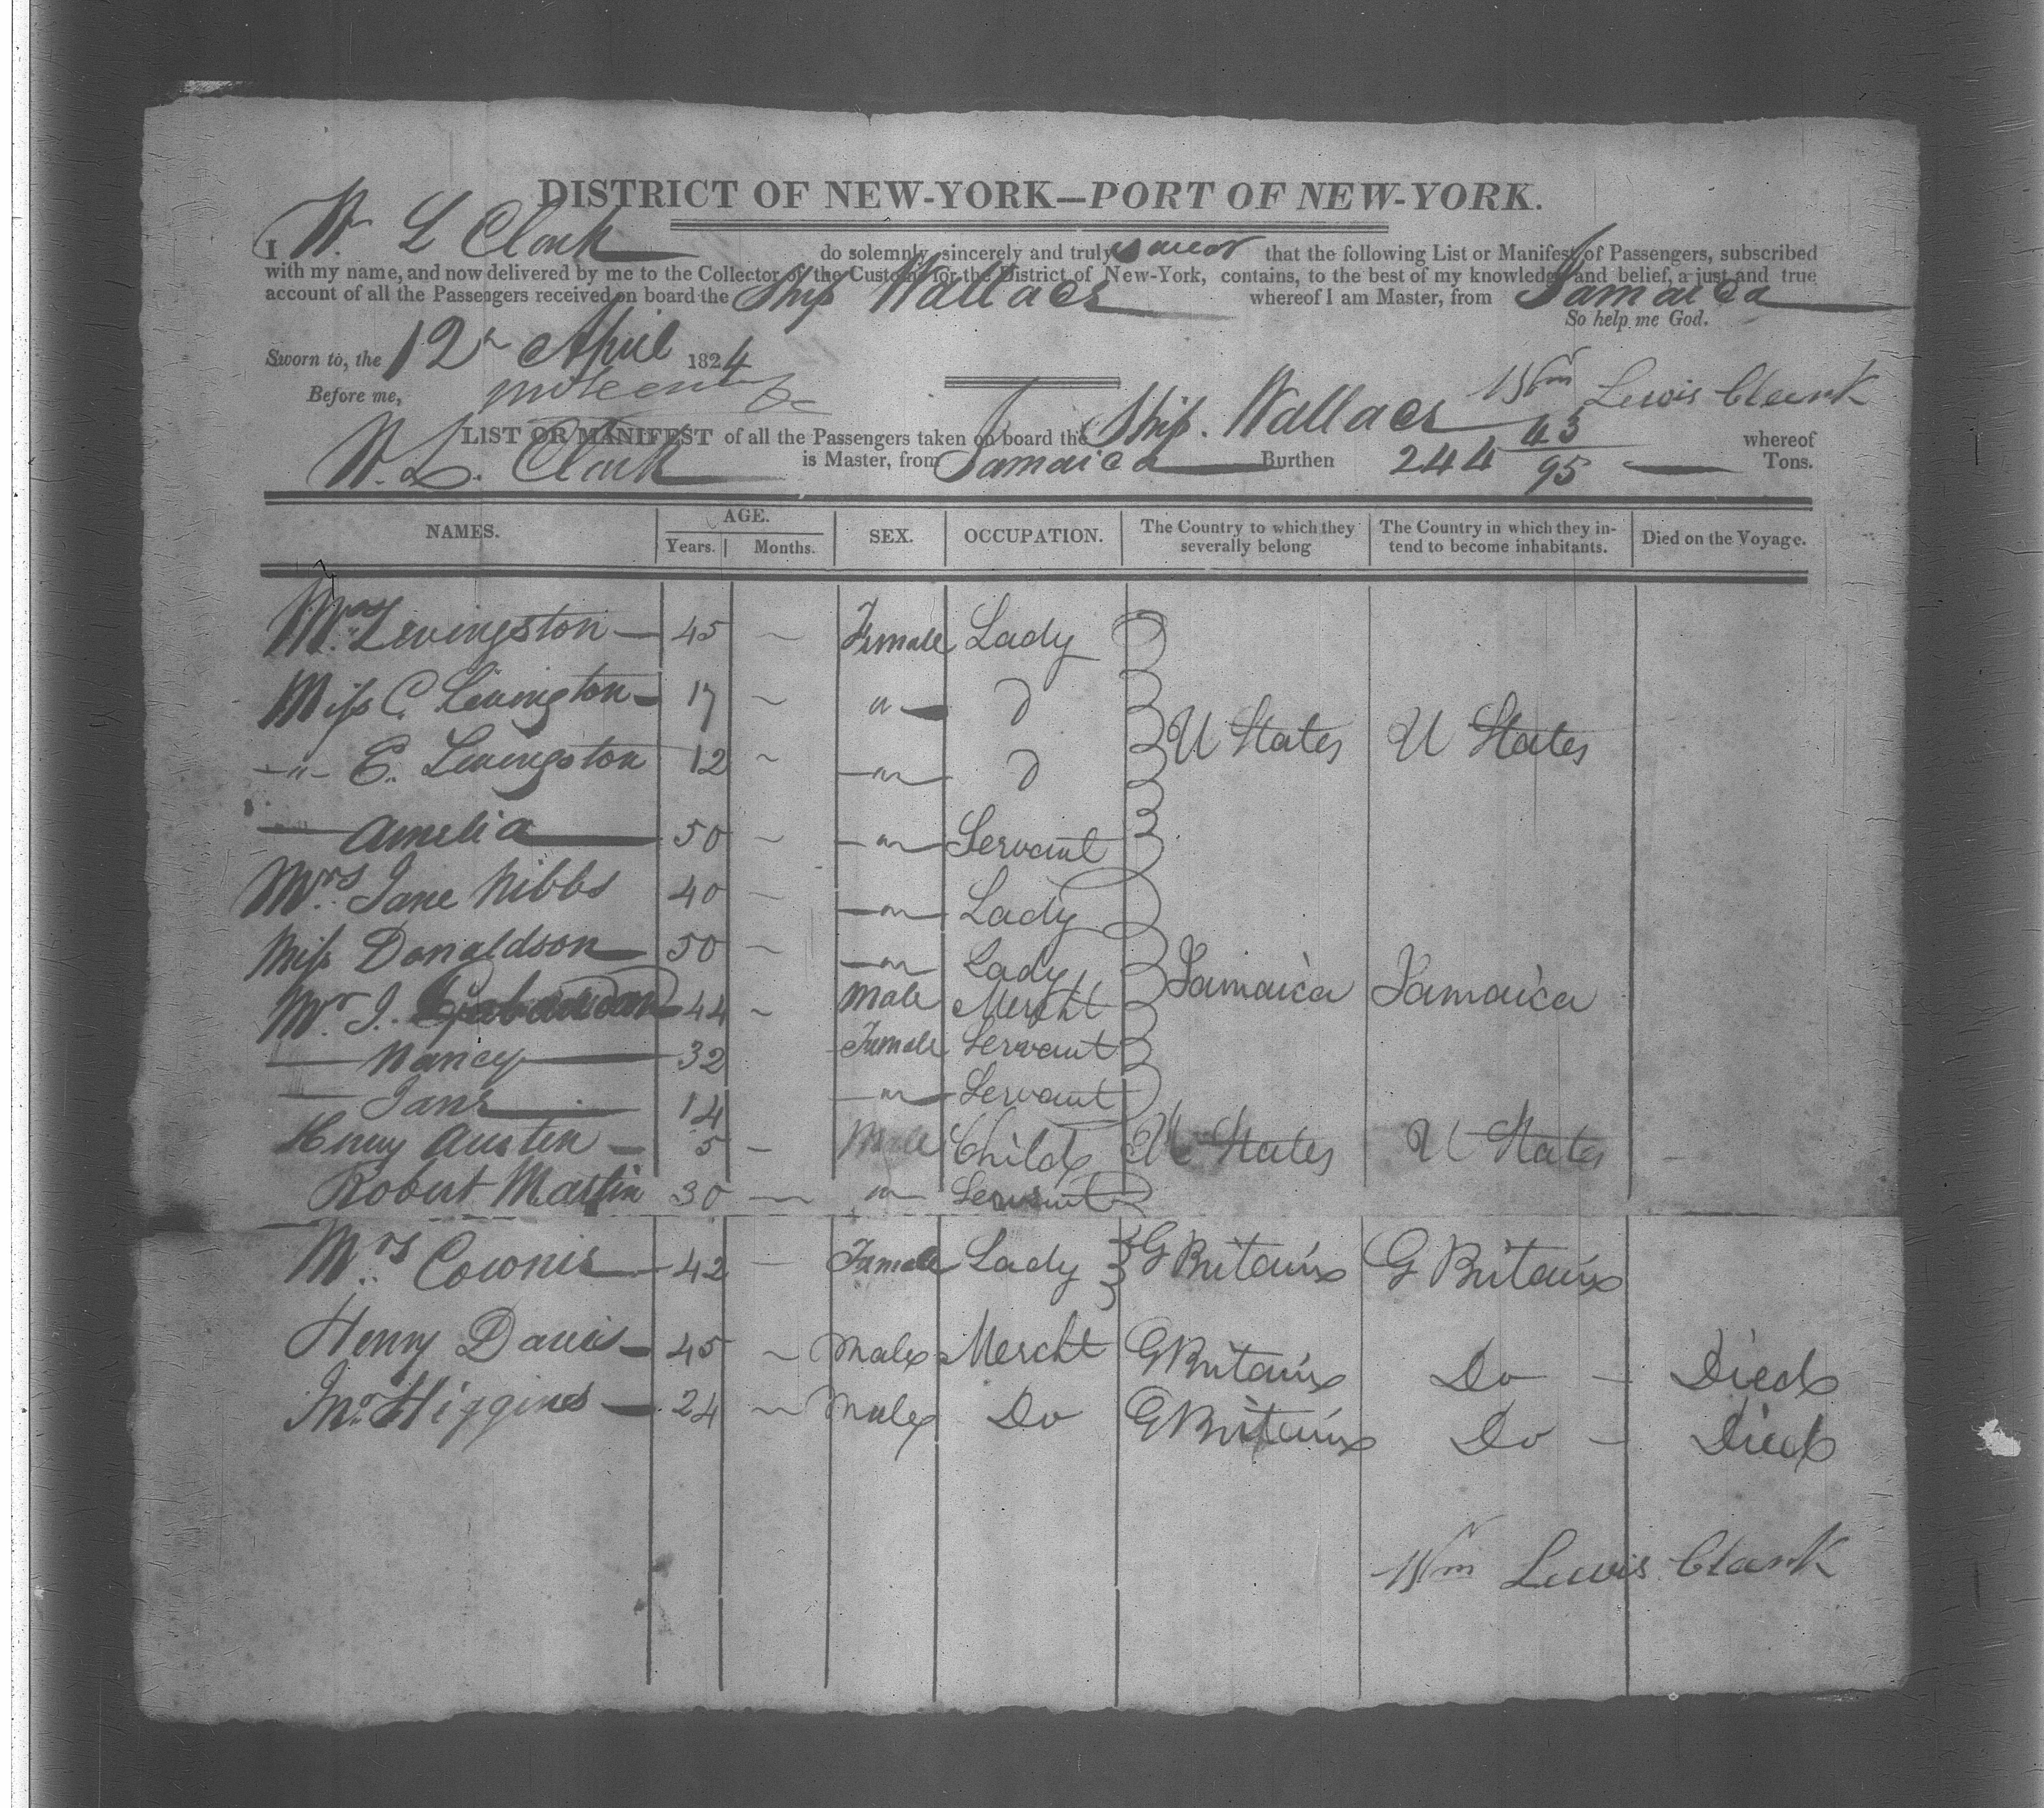 DISTRICT OF NEW-YORK—PORT OF NEW-YORK.
I W. L Clark do solemnly, sincerely and truly swear that the following List or Manifest of Passengers, subscribed
with my name, and now delivered by me to the Collector of the Customs for the District of New-York, contains, to the best of my knowledge and belief, a just and true
account of all the Passengers received on board the Ship Wallace whereof I am Master, from Jamaica
So help me God.
Sworn to, the 12 April 1824
Before me,
Wm Lewis Clark
LIST OR MANIFEST of all the Passengers taken on board the Ship. Wallace whereof
W. L. Clark is Master, from Jamaica Burthen 244 43/95 Tons.
NAMES. AGE. Years. Months. SEX. OCCUPATION. The Country to which they severally belong The Country in which they intend to become inhabitants. Died on the Voyage.
Mrs Livingston 45 Female Lady
Miss C. Livington 17 " D
" E. Livingston 12 " D U States U States
Amelia 50 " Servant
Mrs. Jane Nibbs 40 " Lady
Miss Donaldson 50 " Lady Jamaica Jamaica
Mr J. 44 Male Mercht
Nancy 32 Female Servant
Jane 14 " Servant
Henry Austin 5 Male Child U States U States
Robert Martin 30 " Servant
Mrs 42 Female Lady G Britain G Britain
Henry Davis 45 Male Mercht G Britain Do Died
Jno. Higgins 24 Male Do G Britain Do Died
Wm Lewis Clark